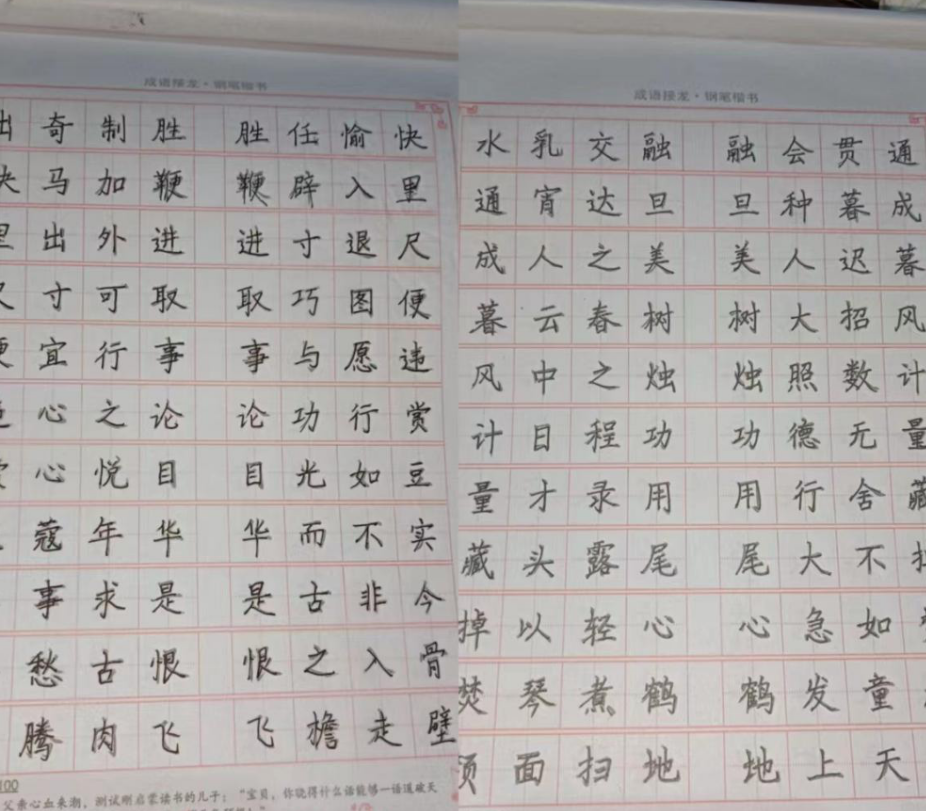 成语接龙·钢笔楷书
出奇制胜 胜任愉快
快马加鞭 鞭辟入里
里出外进 进寸退尺
尺寸可取 取巧图便
便宜行事 事与愿违
违心之论 论功行赏
赏心悦目 目光如豆
蔻年华 华而不实
事求是 是古非今
愁古恨 恨之入骨
腾肉飞 飞檐走壁
100
父亲心血来潮，测试刚启蒙读书的儿子：“宝贝，你晓得什么语能够一语道破天
成语接龙·钢笔楷书
水乳交融 融会贯通
通宵达旦 旦种暮成
成人之美 美人迟暮
暮云春树 树大招风
风中之烛 烛照数计
计日程功 功德无量
量才录用 用行舍藏
藏头露尾 尾大不掉
掉以轻心 心急如
焚琴煮鹤 鹤发童
须面扫地 地上天